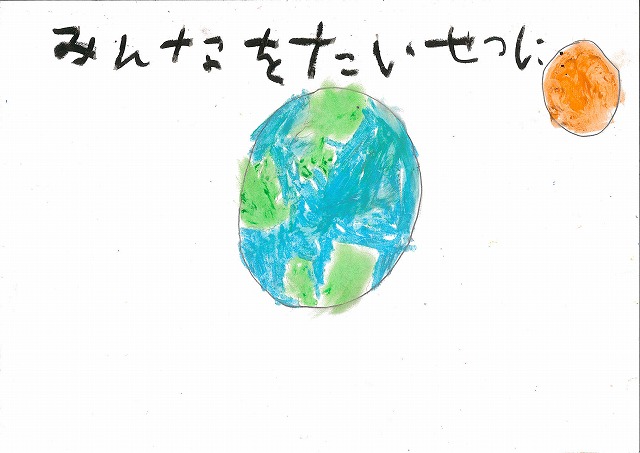 みんなをたいせつに